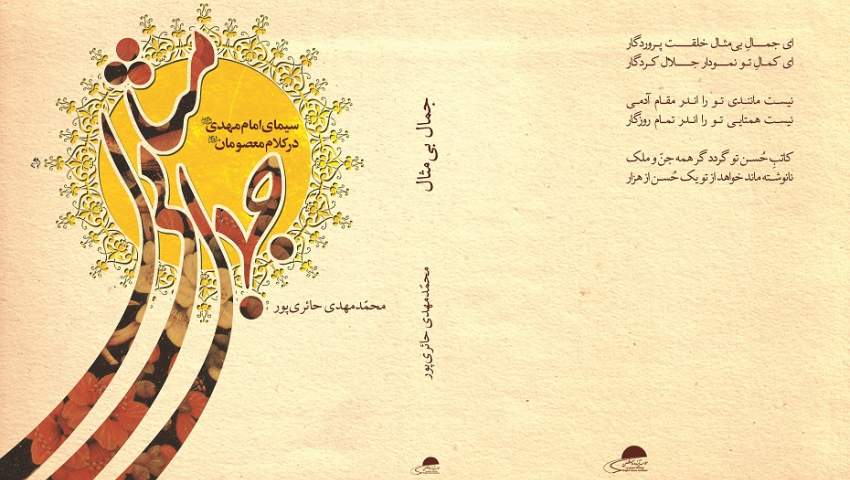 جمال بی‌مثال
سیمای امام مهدی
در کلام معصومان
محمّدمهدی حائری‌پور
جمال بی مثال
محمّدمهدی حائری‌پور
ای جمالِ بی‌مثال خلقت پروردگار
ای کمالِ تو نمودار جلال کردگار
نیست مانندی تو را اندر مقام آدمی
نیست همتایی تو را اندر تمام روزگار
کاتبِ حُسن تو گردد گر همه جنّ و ملک
نانوشته ماند خواهد از تو یک حُسن از هزار